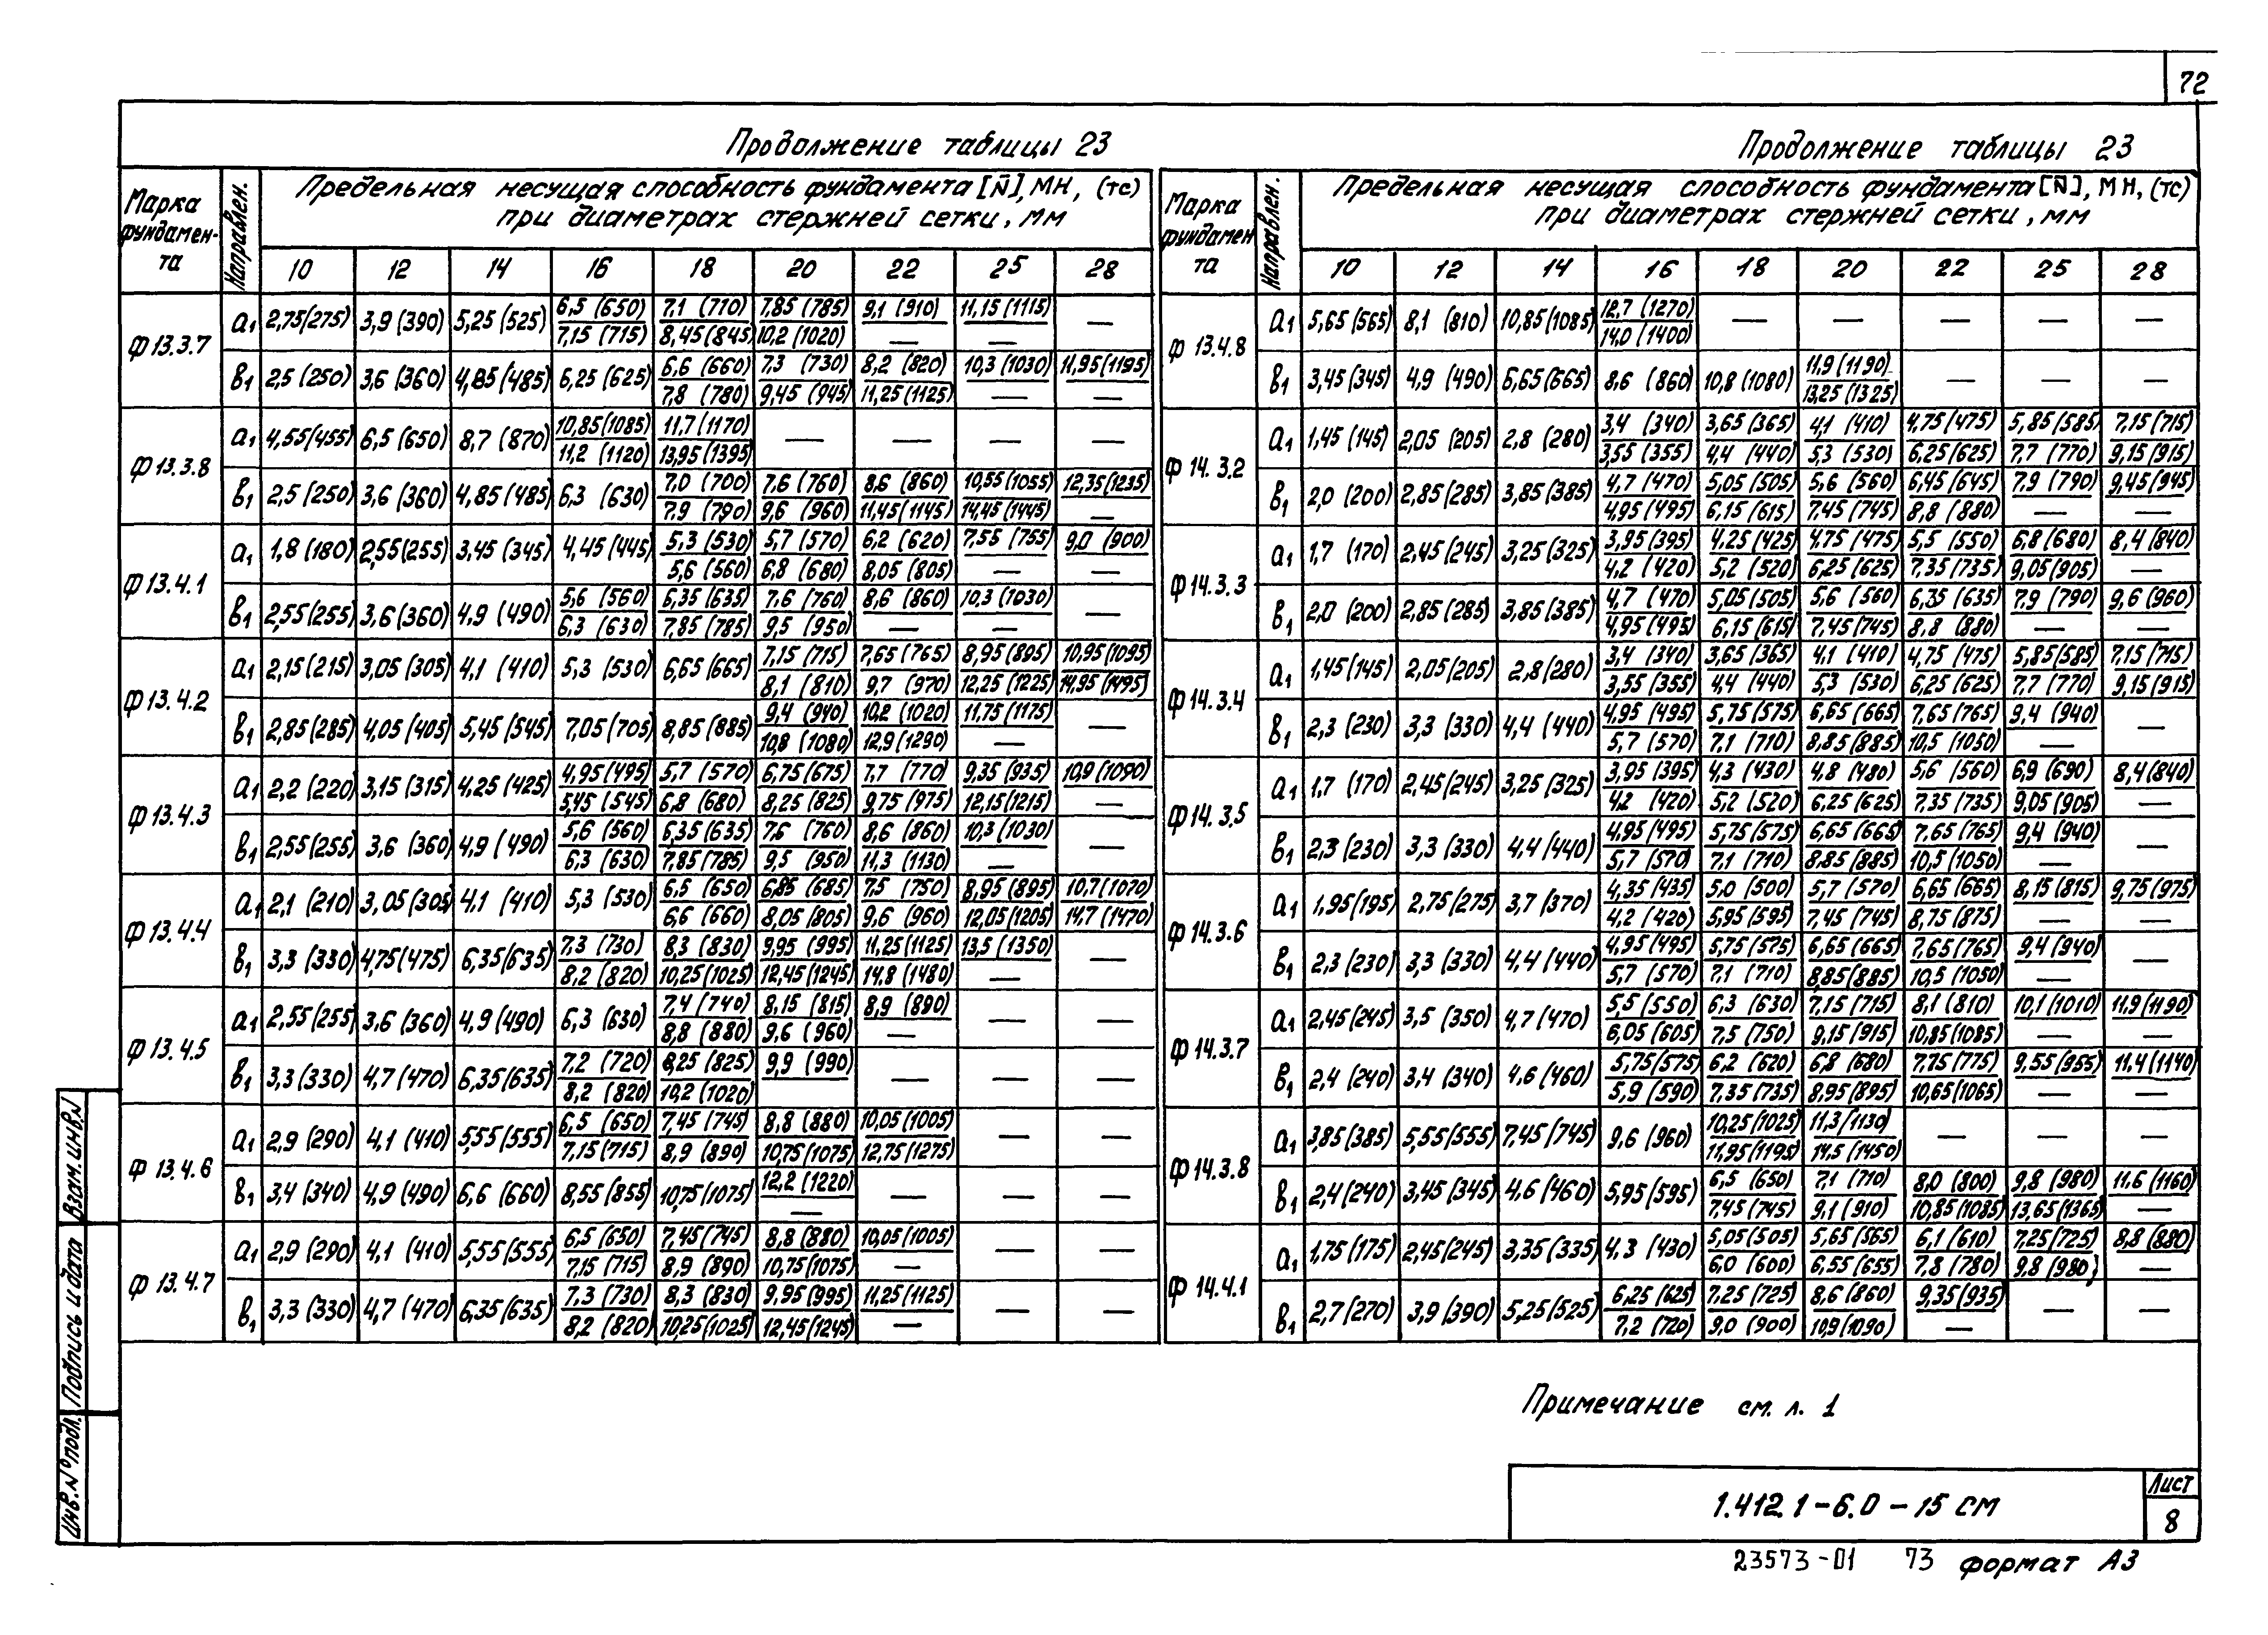 72
Продолжение таблицы 23
Марка фундамен-та | Направлен. | Предельная несущая способность фундамента [N̄], МН, (тс) при диаметрах стержней сетки, мм
10 | 12 | 14 | 16 | 18 | 20 | 22 | 25 | 28
Ф 13.3.7
а1 2,75(275) 3,9 (390) 5,25 (525) 6,5 (650) 7,1 (710) 7,85 (785) 9,1 (910) 11,15 (1115) —
7,15 (715) 8,45 (845) 10,2 (1020) — —
в1 2,5 (250) 3,6 (360) 4,85 (485) 6,25 (625) 6,6 (660) 7,3 (730) 8,2 (820) 10,3 (1030) 11,95(1195)
7,8 (780) 9,45 (945) 11,25(1125) — —
Ф 13.3.8
а1 4,55(455) 6,5 (650) 8,7 (870) 10,85(1085) 11,7 (1170) — — — —
11,2 (1120) 13,95(1395)
в1 2,5 (250) 3,6 (360) 4,85 (485) 6,3 (630) 7,0 (700) 7,6 (760) 8,6 (860) 10,55(1055) 12,35(1235)
7,9 (790) 9,6 (960) 11,45(1145) 14,45(1445) —
Ф 13.4.1
а1 1,8 (180) 2,55(255) 3,45 (345) 4,45 (445) 5,3 (530) 5,7 (570) 6,2 (620) 7,55 (755) 9,0 (900)
5,6 (560) 6,8 (680) 8,05 (805) — —
в1 2,55(255) 3,6 (360) 4,9 (490) 5,6 (560) 6,35 (635) 7,6 (760) 8,6 (860) 10,3 (1030) —
6,3 (630) 7,85 (785) 9,5 (950) — —
Ф 13.4.2
а1 2,15 (215) 3,05 (305) 4,1 (410) 5,3 (530) 6,65 (665) 7,15 (715) 7,65 (765) 8,95 (895) 10,95(1095)
8,1 (810) 9,7 (970) 12,25 (1225) 14,95 (1495)
в1 2,85 (285) 4,05 (405) 5,45 (545) 7,05 (705) 8,85 (885) 9,4 (940) 10,2 (1020) 11,75 (1175) —
10,8 (1080) 12,9(1290) —
Ф 13.4.3
а1 2,2 (220) 3,15 (315) 4,25 (425) 4,95 (495) 5,7 (570) 6,75 (675) 7,7 (770) 9,35 (935) 10,9 (1090)
5,45 (545) 6,8 (680) 8,25 (825) 9,75 (975) 12,15(1215) —
в1 2,55(255) 3,6 (360) 4,9 (490) 5,6 (560) 6,35 (635) 7,6 (760) 8,6 (860) 10,3 (1030) —
6,3 (630) 7,85 (785) 9,5 (950) 11,3 (1130) —
Ф 13.4.4
а1 2,1 (210) 3,05 (305) 4,1 (410) 5,3 (530) 6,5 (650) 6,85 (685) 7,5 (750) 8,95 (895) 10,7 (1070)
6,6 (660) 8,05 (805) 9,6 (960) 12,05(1205) 14,7 (1470)
в1 3,3 (330) 4,75 (475) 6,35 (635) 7,3 (730) 8,3 (830) 9,95 (995) 11,25(1125) 13,5 (1350) —
8,2 (820) 10,25(1025) 12,45(1245) 14,8 (1480) —
Ф 13.4.5
а1 2,55 (255) 3,6 (360) 4,9 (490) 6,3 (630) 7,4 (740) 8,15 (815) 8,9 (890) — —
8,8 (880) 9,6 (960) —
в1 3,3 (330) 4,7 (470) 6,35(635) 7,2 (720) 8,25 (825) 9,9 (990) — — —
8,2 (820) 10,2 (1020)
Ф 13.4.6
а1 2,9 (290) 4,1 (410) 5,55 (555) 6,5 (650) 7,45 (745) 8,8 (880) 10,05(1005) — —
7,15 (715) 8,9 (890) 10,75(1075) 12,75 (1275)
в1 3,4 (340) 4,9 (490) 6,6 (660) 8,55 (855) 10,75 (1075) 12,2 (1220) — — —
—
Ф 13.4.7
а1 2,9 (290) 4,1 (410) 5,55 (555) 6,5 (650) 7,45 (745) 8,8 (880) 10,05(1005) — —
7,15 (715) 8,9 (890) 10,75(1075) —
в1 3,3 (330) 4,7 (470) 6,35 (635) 7,3 (730) 8,3 (830) 9,95 (995) 11,25 (1125) — —
8,2 (820) 10,25(1025) 12,45(1245) —
Продолжение таблицы 23
Марка фундамен та | Направлен. | Предельная несущая способность фундамента [N̄], МН, (тс) при диаметрах стержней сетки, мм
10 | 12 | 14 | 16 | 18 | 20 | 22 | 25 | 28
Ф 13.4.8
а1 5,65 (565) 8,1 (810) 10,85(1085) 12,7 (1270) — — — — —
14,0 (1400)
в1 3,45 (345) 4,9 (490) 6,65 (665) 8,6 (860) 10,8 (1080) 11,9 (1190) — — —
13,25 (1325)
Ф 14.3.2
а1 1,45 (145) 2,05 (205) 2,8 (280) 3,4 (340) 3,65 (365) 4,1 (410) 4,75 (475) 5,85 (585) 7,15 (715)
3,55 (355) 4,4 (440) 5,3 (530) 6,25 (625) 7,7 (770) 9,15 (915)
в1 2,0 (200) 2,85 (285) 3,85 (385) 4,7 (470) 5,05 (505) 5,6 (560) 6,45 (645) 7,9 (790) 9,45 (945)
4,95 (495) 6,15 (615) 7,45 (745) 8,8 (880) — —
Ф 14.3.3
а1 1,7 (170) 2,45 (245) 3,25 (325) 3,95 (395) 4,25 (425) 4,75 (475) 5,5 (550) 6,8 (680) 8,4 (840)
4,2 (420) 5,2 (520) 6,25 (625) 7,35 (735) 9,05 (905) —
в1 2,0 (200) 2,85 (285) 3,85 (385) 4,7 (470) 5,05 (505) 5,6 (560) 6,35 (635) 7,9 (790) 9,6 (960)
4,95 (495) 6,15 (615) 7,45 (745) 8,8 (880) — —
Ф 14.3.4
а1 1,45 (145) 2,05 (205) 2,8 (280) 3,4 (340) 3,65 (365) 4,1 (410) 4,75 (475) 5,85 (585) 7,15 (715)
3,55 (355) 4,4 (440) 5,3 (530) 6,25 (625) 7,7 (770) 9,15 (915)
в1 2,3 (230) 3,3 (330) 4,4 (440) 4,95 (495) 5,75 (575) 6,65 (665) 7,65 (765) 9,4 (940) —
5,7 (570) 7,1 (710) 8,85 (885) 10,5 (1050) —
Ф 14.3.5
а1 1,7 (170) 2,45 (245) 3,25 (325) 3,95 (395) 4,3 (430) 4,8 (480) 5,6 (560) 6,9 (690) 8,4 (840)
4,2 (420) 5,2 (520) 6,25 (625) 7,35 (735) 9,05 (905) —
в1 2,3 (230) 3,3 (330) 4,4 (440) 4,95 (495) 5,75 (575) 6,65 (665) 7,65 (765) 9,4 (940) —
5,7 (570) 7,1 (710) 8,85 (885) 10,5 (1050) —
Ф 14.3.6
а1 1,95 (195) 2,75 (275) 3,7 (370) 4,35 (435) 5,0 (500) 5,7 (570) 6,65 (665) 8,15 (815) 9,75 (975)
4,2 (420) 5,95 (595) 7,45 (745) 8,75 (875) — —
в1 2,3 (230) 3,3 (330) 4,4 (440) 4,95 (495) 5,75 (575) 6,65 (665) 7,65 (765) 9,4 (940) —
5,7 (570) 7,1 (710) 8,85 (885) 10,5 (1050) —
Ф 14.3.7
а1 2,45 (245) 3,5 (350) 4,7 (470) 5,5 (550) 6,3 (630) 7,15 (715) 8,1 (810) 10,1 (1010) 11,9 (1190)
6,05 (605) 7,5 (750) 9,15 (915) 10,85 (1085) — —
в1 2,4 (240) 3,4 (340) 4,6 (460) 5,75 (575) 6,2 (620) 6,8 (680) 7,75 (775) 9,55 (955) 11,4 (1140)
5,9 (590) 7,35 (735) 8,95 (895) 10,65 (1065) — —
Ф 14.3.8
а1 3,85 (385) 5,55 (555) 7,45 (745) 9,6 (960) 10,25 (1025) 11,3 (1130) — — —
11,95 (1195) 14,5 (1450)
в1 2,4 (240) 3,45 (345) 4,6 (460) 5,95 (595) 6,5 (650) 7,1 (710) 8,0 (800) 9,8 (980) 11,6 (1160)
7,45 (745) 9,1 (910) 10,85 (1085) 13,65 (1365) —
Ф 14.4.1
а1 1,75 (175) 2,45 (245) 3,35 (335) 4,3 (430) 5,05 (505) 5,65 (565) 6,1 (610) 7,25 (725) 8,8 (880)
6,0 (600) 6,55 (655) 7,8 (780) 9,8 (980) —
в1 2,7 (270) 3,9 (390) 5,25 (525) 6,25 (625) 7,25 (725) 8,6 (860) 9,35 (935) — —
7,2 (720) 9,0 (900) 10,9 (1090) —
Примечание см. л. 1
1.412.1-6.0-15 СМ
Лист
8
23573-01 73 формат А3
Взам. инв. N
Подпись и дата
Инв. N° подл.